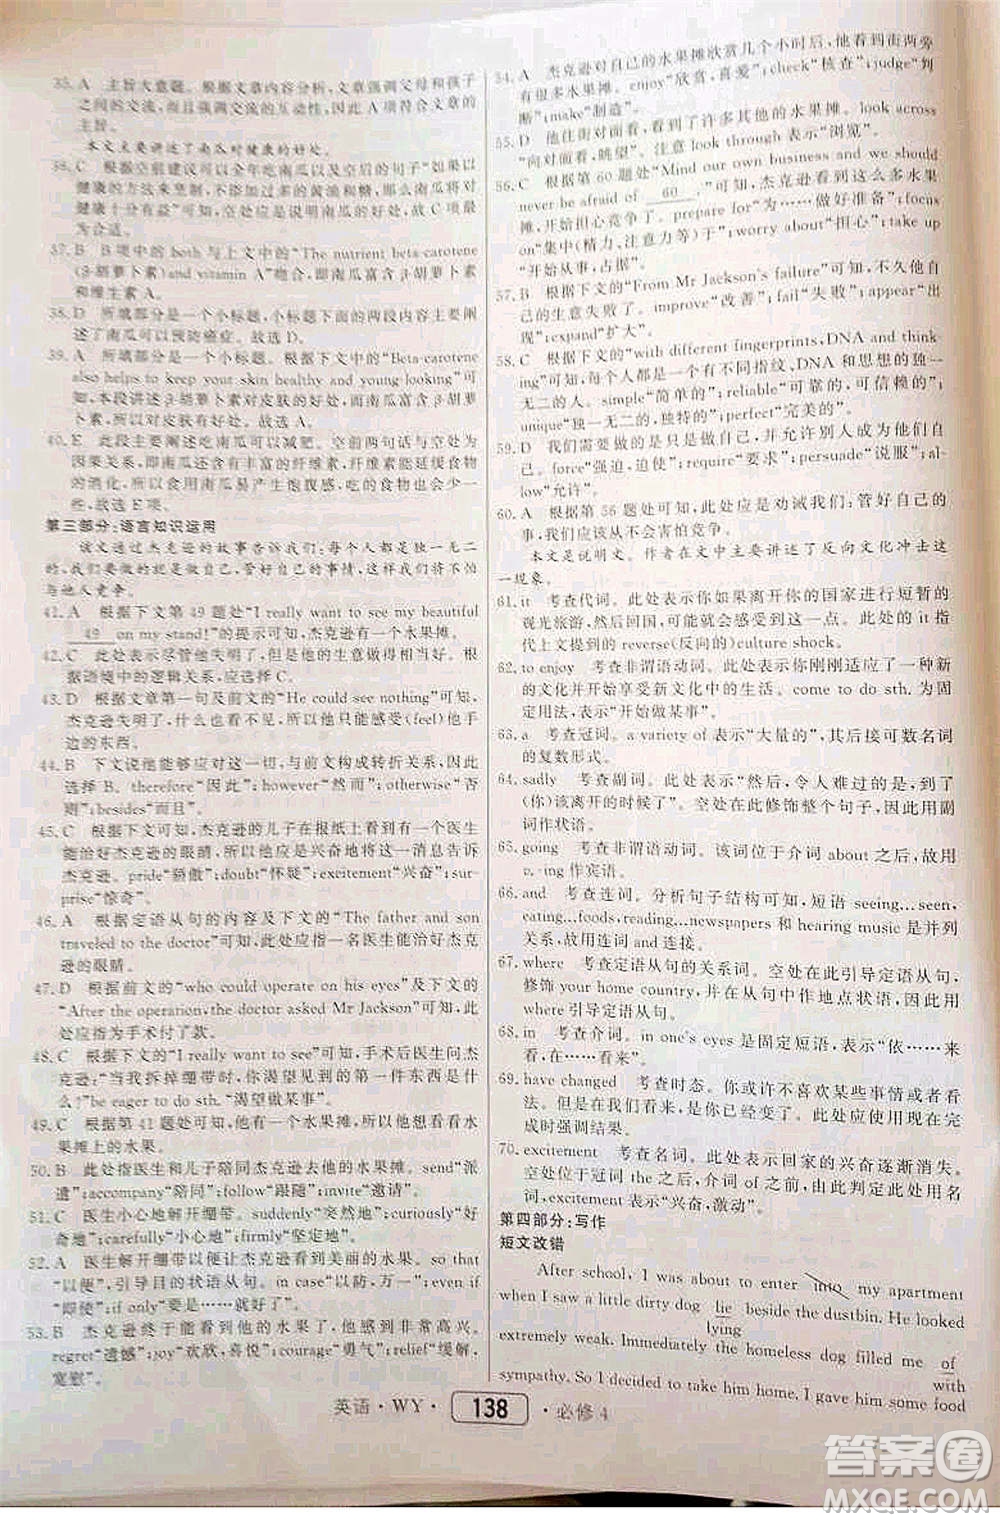 35. A 主旨大意题。根据文章内容分析,文章强调父母和孩子
之间的交流,而且强调交流的互动性。因此 A 项符合文章的
主旨。
本文主要讲述了南瓜对健康的好处。
36. C 根据空前建议可以全年吃南瓜以及空后的句子“如果以
健康的方法来烹制,不添加过多的黄油和糖,那么南瓜将对
健康十分有益”可知,空处应为食用南瓜的好处,故 C 项最
为合适。
37. B B 项中的 both 与上文中的“The nutrient beta-carotene
(β-胡萝卜素) and vitamin A”吻合,即南瓜富含 β-胡萝卜素
和维生素 A。
38. D 所填部分是一个小标题,小标题下面的两段内容主要阐
述了南瓜可以预防癌症。故选 D。
39. A 所填部分是一个小标题。根据下文中的“Beta-carotene
also helps to keep your skin healthy and young-looking”可
知,本段主要讲述了 β-胡萝卜素对皮肤的好处。南瓜富含 β-胡
萝卜素,所以对皮肤有好处。故选 A。
40. E 此段主要阐述吃南瓜可以减肥。空前两句话与空处为
因果关系,即南瓜含有丰富的纤维素,纤维素能减慢食物
的消化,所以食用南瓜易产生饱腹感,吃得更少,从而达到
减肥效果。故选 E 项。
第三部分:语言知识运用
该文通过杰克逊的故事告诉我们:每个人都是独一无二
的,我们需要做的就是做自己,管好自己的事情,这样就不会怕
与他人竞争。
41. A 根据下文第 49 题处“I really want to see my beautiful
49 on my stand!”的提示可知,杰克逊有一个水果摊。
42. C 此处表示尽管他失明了,但是他的生意做得很好。根
据语境中的逻辑关系,应选择 C。
43. D 根据文章第一句及前文的“He could see nothing”可知,
杰克逊失明了,什么也看不见,所以他只能感受(feel)他手
边的东西。
44. B 下文说他能够应对这一切,与前文构成转折关系,因此
选择 B。therefore “因此”;however“然而”;otherwise“否
则”;besides“而且”。
45. C 根据下文可知,杰克逊的儿子在报纸上看到有一个医生
能治好杰克逊的眼睛,所以他应是兴奋地将这一消息告诉
杰克逊。pride“骄傲”;doubt“怀疑”;excitement“兴奋”;sur-
prise“惊奇”。
46. A 根据定语从句的内容及下文的“The father and son
traveled to the doctor”可知,此处应指一名医生能治好杰克
逊的眼睛。
47. D 根据前文的“who could operate on his eyes”及下文的
“After the operation,the doctor asked Mr Jackson”可知,此
处应指为手术付了款。
48. C 根据下文的“I really want to see”可知,手术后医生问杰
克逊:“当我拆掉绷带时,你渴望见到的第一件东西是什
么?”be eager to do sth. “渴望做某事”。
49. C 根据第 41 题处可知,他有一个水果摊,所以他想看看水
果摊上的水果。
50. B 此处指医生和儿子陪同杰克逊去他的水果摊。send“派
遣”;accompany“陪同”;follow“跟随”;invite“邀请”。
51. C 医生小心地解开绷带。suddenly“突然地”;curiously“好
奇地”;carefully“小心地”;firmly“坚定地”。
52. A 医生解开绷带以便让杰克逊看到美丽的水果。so that
“以便”,引导目的状语从句。in case“以防,万一”;even if
“即使”;if only“要是……就好了”。
53. B 杰克逊终于能看到他的水果了,他感到非常高兴。
regret“遗憾”;joy“欢欣,喜悦”;courage“勇气”;relief“缓解,
宽慰”。
54. A 杰克逊对自己的水果摊欣赏几个小时后,他看到街两旁
有很多水果摊。enjoy“欣赏,喜爱”;check“核查”;judge“判
断”;make“制造”。
55. D 他往街对面看,看到了许多其他的水果摊。look across
“向对面看,眺望”。注意 look through 表示“浏览”。
56. C 根据第 60 题处“Mind our own business and we should
never be afraid of 60 .”可知,杰克逊看到这么多水果
摊,开始担心竞争了。prepare for“为……做好准备”;focus
on“集中(精力、注意力等)于”;worry about“担心”;take up
“开始从事,占据”。
57. B 根据下文的“From Mr Jackson's failure”可知,他的水果
生意失败了。improve“改善”;fail“失败”;appear“出
现”;expand“扩大”。
58. C 根据下文的“with different fingerprints, DNA and think-
ing”可知,每个人都是一个有不同指纹、DNA 和思想的独一
无二的人。simple“简单的”;reliable“可靠的,可信赖的”;
unique“独一无二的,独特的”;perfect“完美的”。
59. D 我们需要做的是做最好的自己,并允许别人成为他们自
己。force“强迫,迫使”;require“要求”;persuade“说服”;al-
low“允许”。
60. A 根据第 56 题处可知,此处应是劝诫我们:管好自己的
事,我们应该永不会害怕竞争。
本文是说明文。作者在文中主要讲述了反向文化冲击这
一现象。
61. it 考查代词。此处表示如果离开你的国家进行短暂的
观光旅游,你可能就感受不到这一点。此处的 it 指
代上文提到的 reverse(反向的)culture shock。
62. to enjoy 考查非谓语动词。此处表示你刚刚适应了一种新
的文化并开始享受新文化中的生活。come to do sth. 为固
定用法,表示“开始做某事”。
63. a 考查冠词。a variety of 表示“大量的”,其后接可数名词
的复数形式。
64. sadly 考查副词。此处表示“然后,令人难过的是,到了
(你)该离开的时候了”。空处在此修饰整个句子,因此用副
词作状语。
65. going 考查非谓语动词。该词位于介词 about 之后,故用
v.-ing 作宾语。
66. and 考查连词。分析句子结构可知,短语 seeing...seen,
eating...foods, reading...newspapers 和 hearing music 是并列
关系,故用连词 and 连接。
67. where 考查定语从句的关系词。空处在此引导定语从句,
修饰 your home country,并在从句中作地点状语,故使用
where 引导定语从句。
68. in 考查介词。in one's eyes 是固定短语,表示“依……来
看,在……看来”。
69. have changed 考查时态。你或许不喜欢某些事情或者看
法。但是在我们看来,你已经变了。此处应使用现在完
成时强调结果。
70. excitement 考查名词。此处表示回家的兴奋逐渐消失。
空处位于冠词 the 之后,介词 of 之前,由此判定此处应使用名
词,excitement 表示“兴奋,激动”。
第四部分:写作
短文改错
After school, I was about to enter into my apartment
when I saw a little dirty dog lie beside the dustbin. He looked
lying
extremely weak. Immediately the homeless dog filled me of
with
sympathy. So I decided to take him home. I gave him some food
英语·WY· 138 ·必修 4
答案圈
MXQE.COM